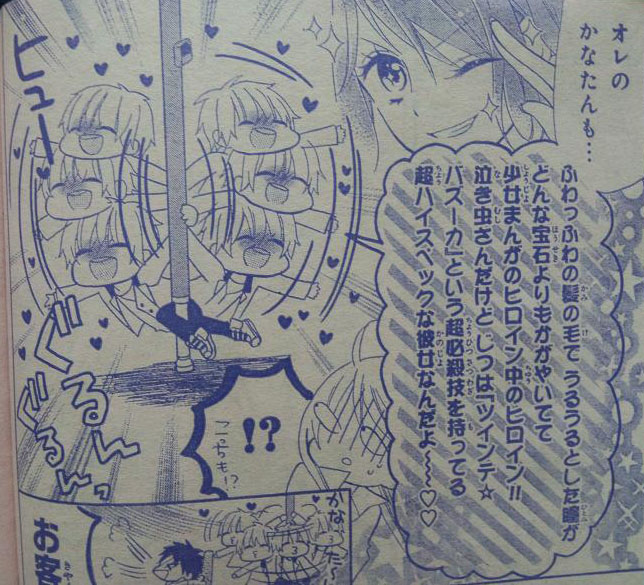 オレの
かなたんも…
ふわっふわの髪の毛で うるうるとした瞳が
どんな宝石よりもかがやいてて
少女まんがのヒロイン中のヒロイン!!
泣き虫さんだけど、じつは『ツインテ☆
バズーカ』という超必殺技を持ってる
超ハイスペックな彼女なんだよ〜〜♡♡
ヒュー
ぐるん
ぐるんっ
!?
こっちも!?
かな
た〜
お客